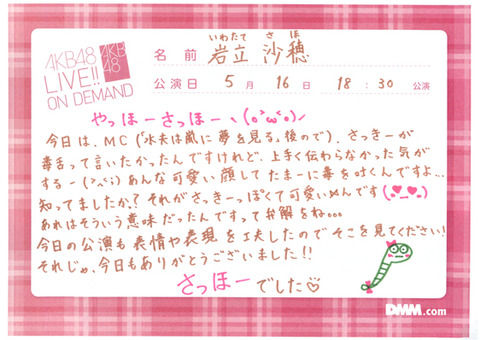 AKB48
LIVE!!
ON DEMAND
AKB
48
いわたて さほ
名前 岩立 沙穂
公演日 5月 16日 18:30 公演
やっほーさっほーヽ(o`ω´o)ノ
今日は、MC(「水夫は嵐に夢を見る」後ので)、さっきーが
毒舌って言いたかったんですけれど、上手く伝わらなかった気が
するー(>_<)あんな可愛い顔してたまーに毒を吐くんですよ、、
知ってましたか?それがさっきーっぽくて可愛いめんです
あれはそういう意味だったんですって弁解をね。。。
今日の公演も表情や表現を工夫したのでそこを見てください!
それじゃ、今日もありがとうございました!!
さっほーでした♡
DMM.com